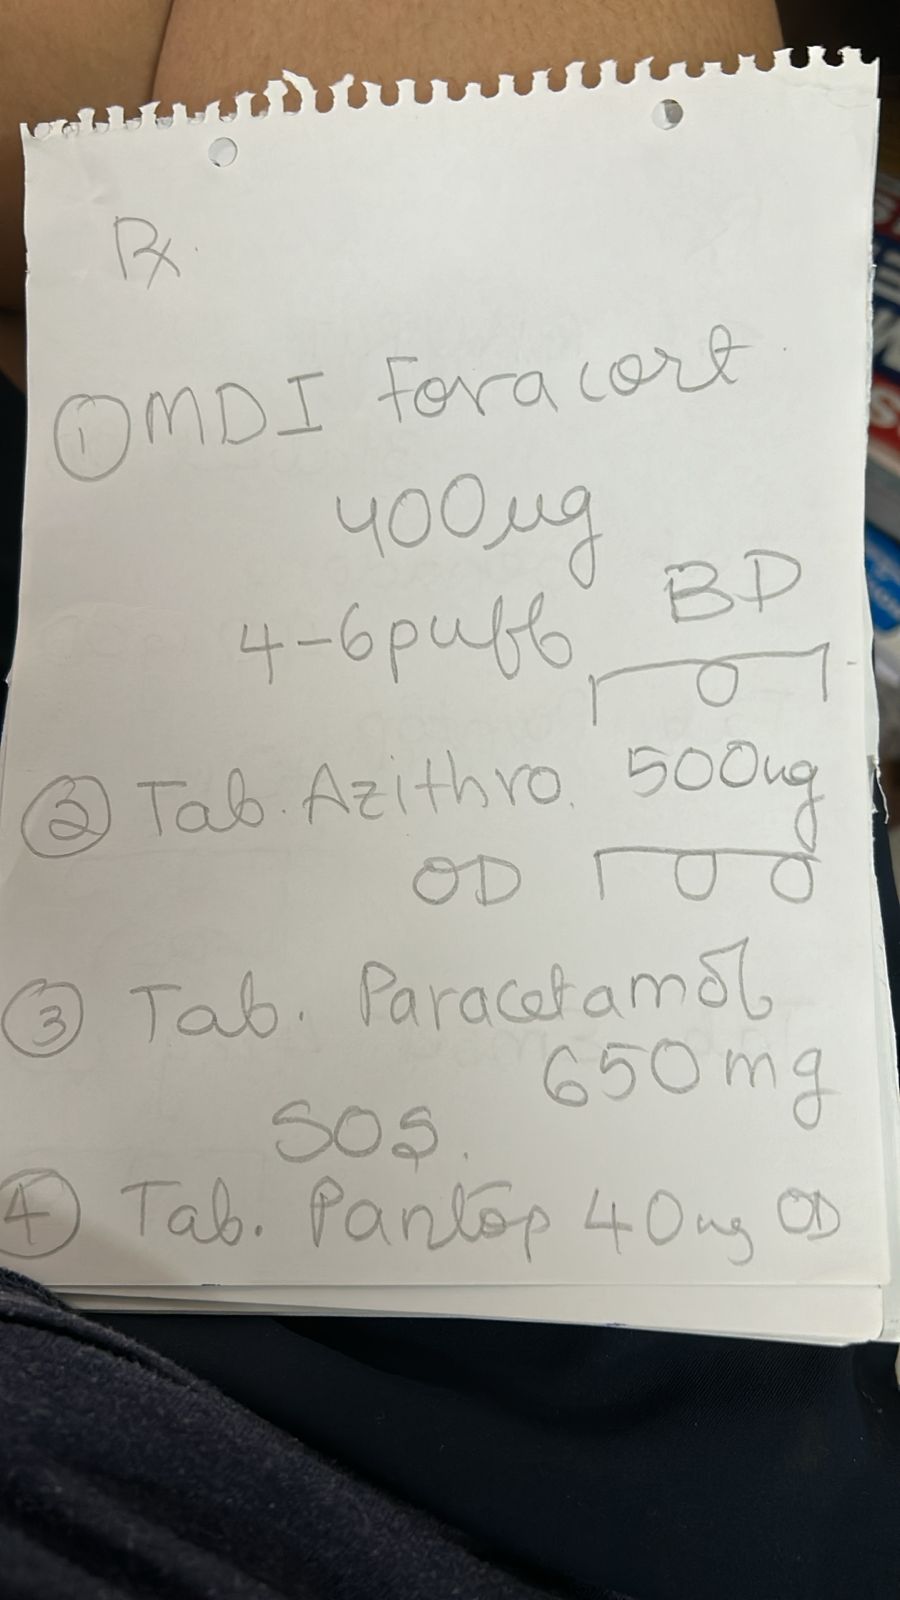 Rx.
① MDI Foracort
400µg
4-6 puff BD
1 0 1
② Tab. Azithro. 500mg
OD 1 0 0
③ Tab. Paracetamol
650mg
SOS.
④ Tab. Pantop 40mg OD